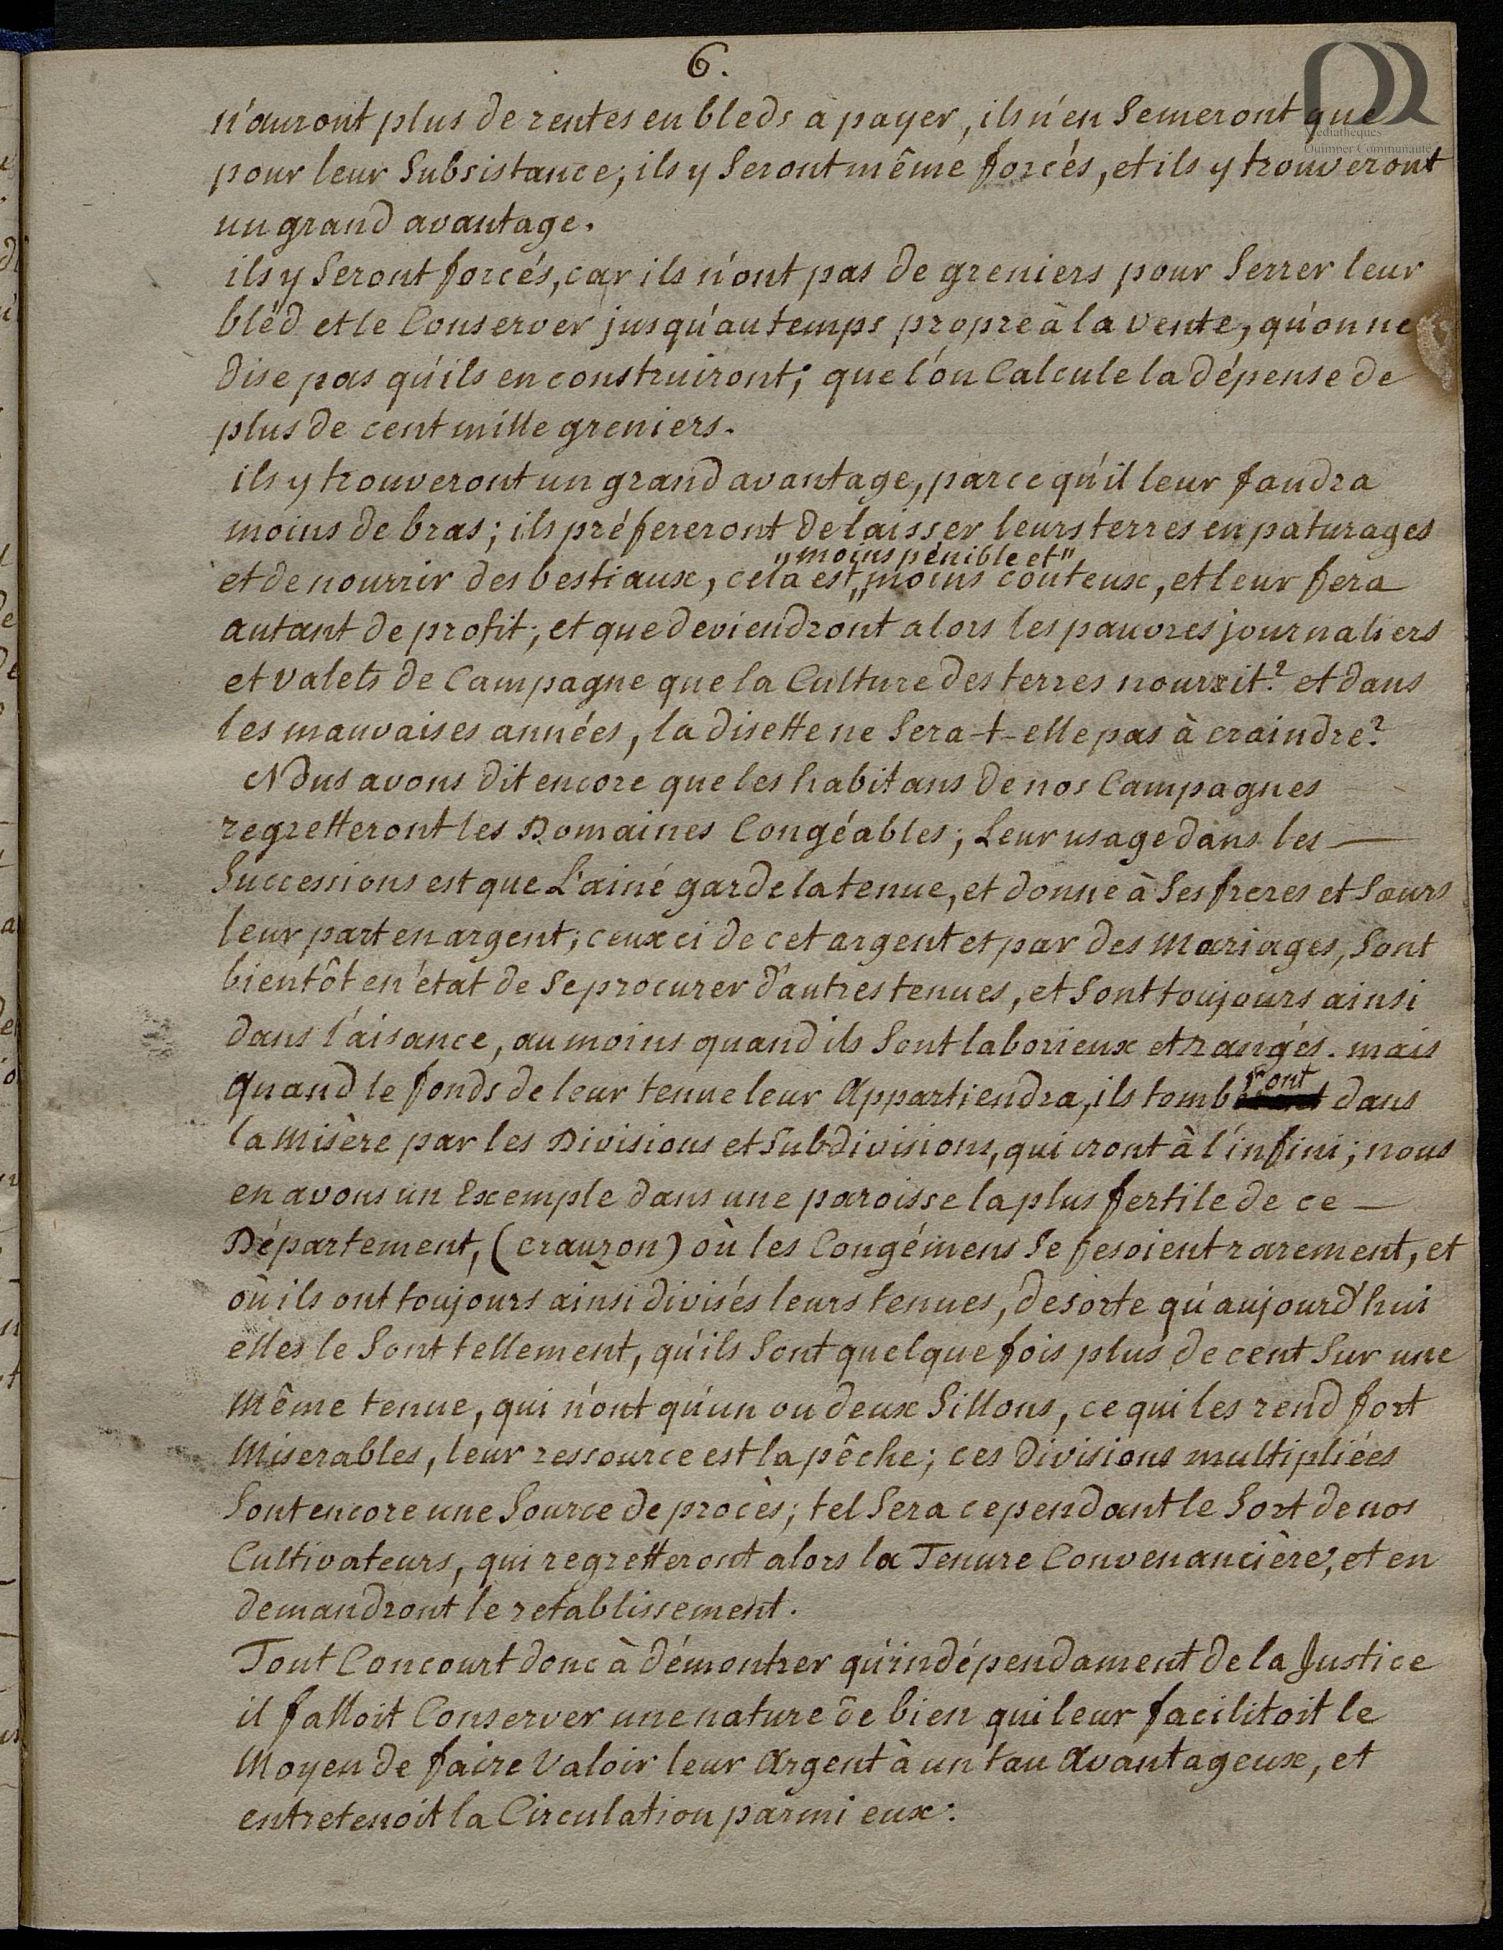 6.
Médiathèques
Quimper Communauté
n'auront plus de rentes en bleds a payer, ils n'en Semeront que
pour leur Subsistance; ils y Seront même forcés, et ils y trouveront
un grand avantage.
ils y Seront forcés, car ils n'ont pas de greniers pour Serrer leur
bléd et le Conserver jusqu'au temps propre à la vente, qu'on ne
dise pas qu'ils en construiront; que l'on Calcule la dépense de
plus de cent mille greniers.
ils y trouveront un grand avantage, parce qu'il leur faudra
moins de bras; ils préfereront de laisser leurs terres en paturages
"moins pénible et"
et de nourrir des bestiaux, cela est "moins couteux, et leur fera
autant de profit; et que deviendront alors les pauvres journaliers
et valets de Campagne que la Culture des terres nourrit? et dans
les mauvaises années, la disette ne Sera-t-elle pas à craindre?
Nous avons dit encore que les habitans de nos Campagnes
regretteront les Domaines Congéables; Leur usage dans les —
Successions est que L'ainé garde la tenue, et donne à Ses freres et Sœurs
leur part en argent; ceux ci de cet argent et par des Mariages, Sont
bientôt en état de Se procurer d'autres tenues, et Sont toujours ainsi
dans l'aisance, au moins quand ils Sont laborieux et rangés. mais
quand le fonds de leur tenue leur Appartiendra, ils tombront dans
la Misère par les Divisions et Subdivisions, qui iront à l'infini; nous
en avons un Exemple dans une paroisse la plus fertile de ce —
Département, (crauzon) où les Congémens Se fesoient rarement, et
où ils ont toujours ainsi divisés leurs tenues, desorte qu'aujourd'hui
elles le Sont tellement, qu'ils Sont quelque fois plus de cent Sur une
Même tenue, qui n'ont qu'un ou deux Sillons, ce qui les rend fort
Miserables, leur ressource est la pêche; ces Divisions multipliées
Sont encore une Source de procès; tel Sera cependant le Sort de nos
Cultivateurs, qui regretteront alors la Tenure Convenancière, et en
demandront le retablissement.
Tout Concourt donc à démontrer qu'indépendament de la Justice
il falloit Conserver une nature de bien qui leur facilitoit le
Moyen de faire Valoir leur Argent à un tau Avantageux, et
entretenoit la Circulation parmi eux: